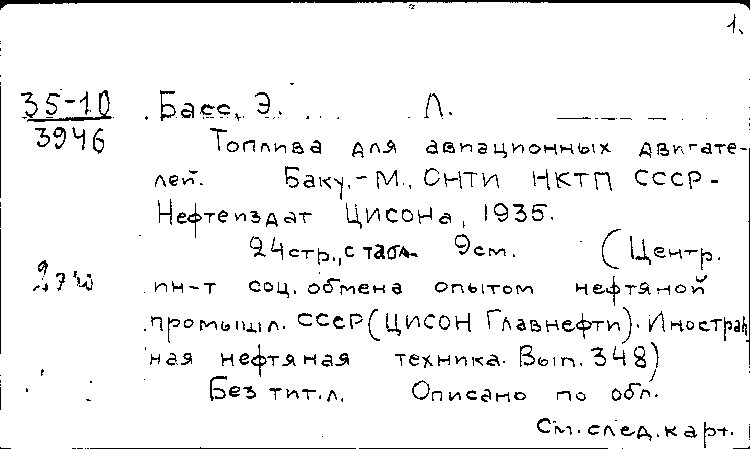 1.
35-10 Басс, Э. Л.
3946
Топлива для авиационных двигате-
лей. Баку.-М., ОНТИ НКТП СССР -
Нефтеиздат ЦИСОНа, 1935.
24стр., с табл. 9см. (Центр.
ин-т соц. обмена опытом нефтяной
промышл. СССР (ЦИСОН Главнефти). Иностран
ная нефтяная техника. Вып. 348)
Без тит.л. Описано по обл.
См. след. карт.